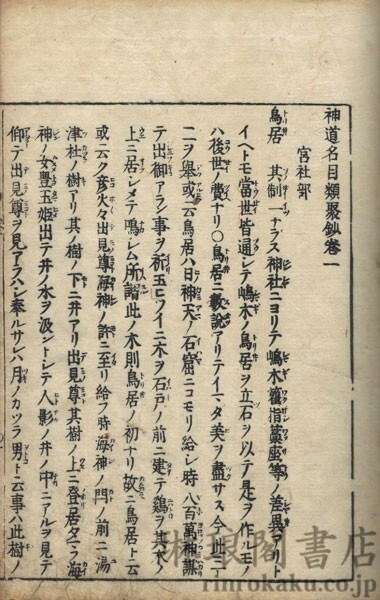 神道名目類聚鈔巻一
宮社部
鳥居 其制一ナラス神社ニヨリテ嶋木籠指藁座等ノ差異アリト
イヘトモ當世皆通シテ嶋木ノ鳥居ヲ立石ヲ以テ是ヲ作ルモノ
ハ後世ノ費ナリ○鳥居ニ數説アリテイマタ美ヲ盡サス今此ニ一
二ヲ舉或云鳥居ハ日神天ノ石窟ニコモリ給シ時八百萬神謀
テ出御アラン事ヲ祈玉ヒツイニ木ヲ石戸ノ前ニ建テ鷄ヲ其木ノ
上ニ居シメテ鳴シム所謂此ノ木則鳥居ノ初ナリ故ニ鳥居ト云
或云ク彦火々出見尊海神ノ許ニ至リ給フ時海神ノ門ノ前ニ湯
津杜ノ樹アリ其ノ樹ノ下ニ井アリ出見尊其樹ノ上ニ登居タマフ海
神ノ女豊玉姫出テ井ノ水ヲ汲ントシテ人影ノ井ノ中ニアルヲ見テ
仰テ出見尊ヲ見アラハシ奉ルサレハ月ノカツラ男ト云事ハ此樹ノ
琳琅閣書店
rinrokaku.co.jp